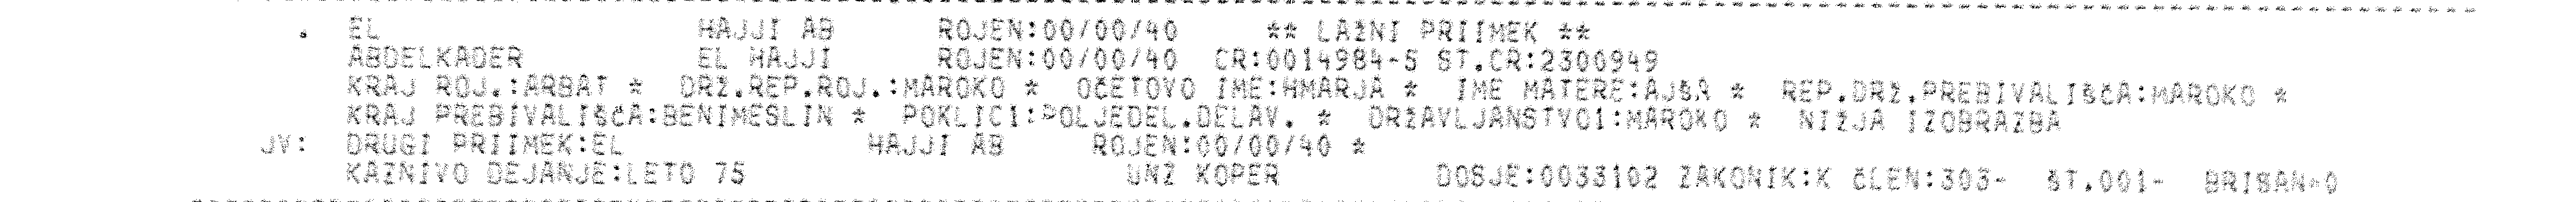 . EL HAJJI AB ROJEN:00/00/40 ** LAŽNI PRIIMEK **
ABDELKADER EL HAJJI ROJEN:00/00/40 CR:0014984-5 ST.CR:2300949
KRAJ ROJ.:ARBAT * DRŽ.REP.ROJ.:MAROKO * OČETOVO IME:HMARJA * IME MATERE:AJŠA * REP.DRŽ.PREBIVALIŠČA:MAROKO *
KRAJ PREBIVALIŠČA:BENIMESLIN * POKLIC1:POLJEDEL.DELAV. * DRŽAVLJANSTVO1:MAROKO * NIŽJA IZOBRAZBA
JV: DRUGI PRIIMEK:EL HAJJI AB ROJEN:00/00/40 *
KAZNIVO DEJANJE:LETO 75 UNZ KOPER DOSJE:0033102 ZAKONIK:K ČLEN:303- ŠT.001- BRISAN=0